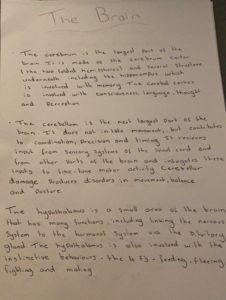 The Brain
The cerebrum is the largest part of the
brain It is made of the cerebrum cortex
(the two folded hemispheres) and several structure
underneath including the hippocampus which
is involved with memory. The cerebral cortex
is involved with consciousness, language, thought
and Perception
The Cerebellum is the next largest part of the
brain. It does not intate movement, but contributes
to coordination, precision and timing. It recieves
input from sensory systems of the spinal cord and
from other parts of the brain and integrates these
inputs to fine-tune motor activity Cerebellar
damage Produces disorders in movement, balance
and Posture.
The hypothalamus is a small area of the brain
that has many functions, including linking the nervous
System to the hormonal System via the Pituitary
gland The hypothalamus is also involved with the
instinctive behaviours - the 4 Fs - feeding, fleeing
fighting and mating